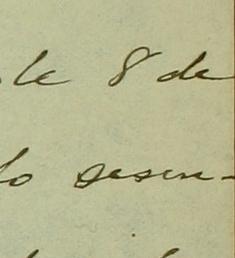 de 8 de
lo sesen-